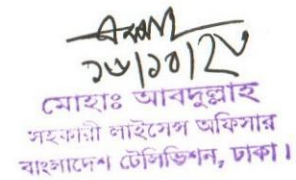 ১৮/১০/২০
মোহাঃ আবদুল্লাহ
সহকারী লাইসেন্স অফিসার
বাংলাদেশ টেলিভিশন, ঢাকা।